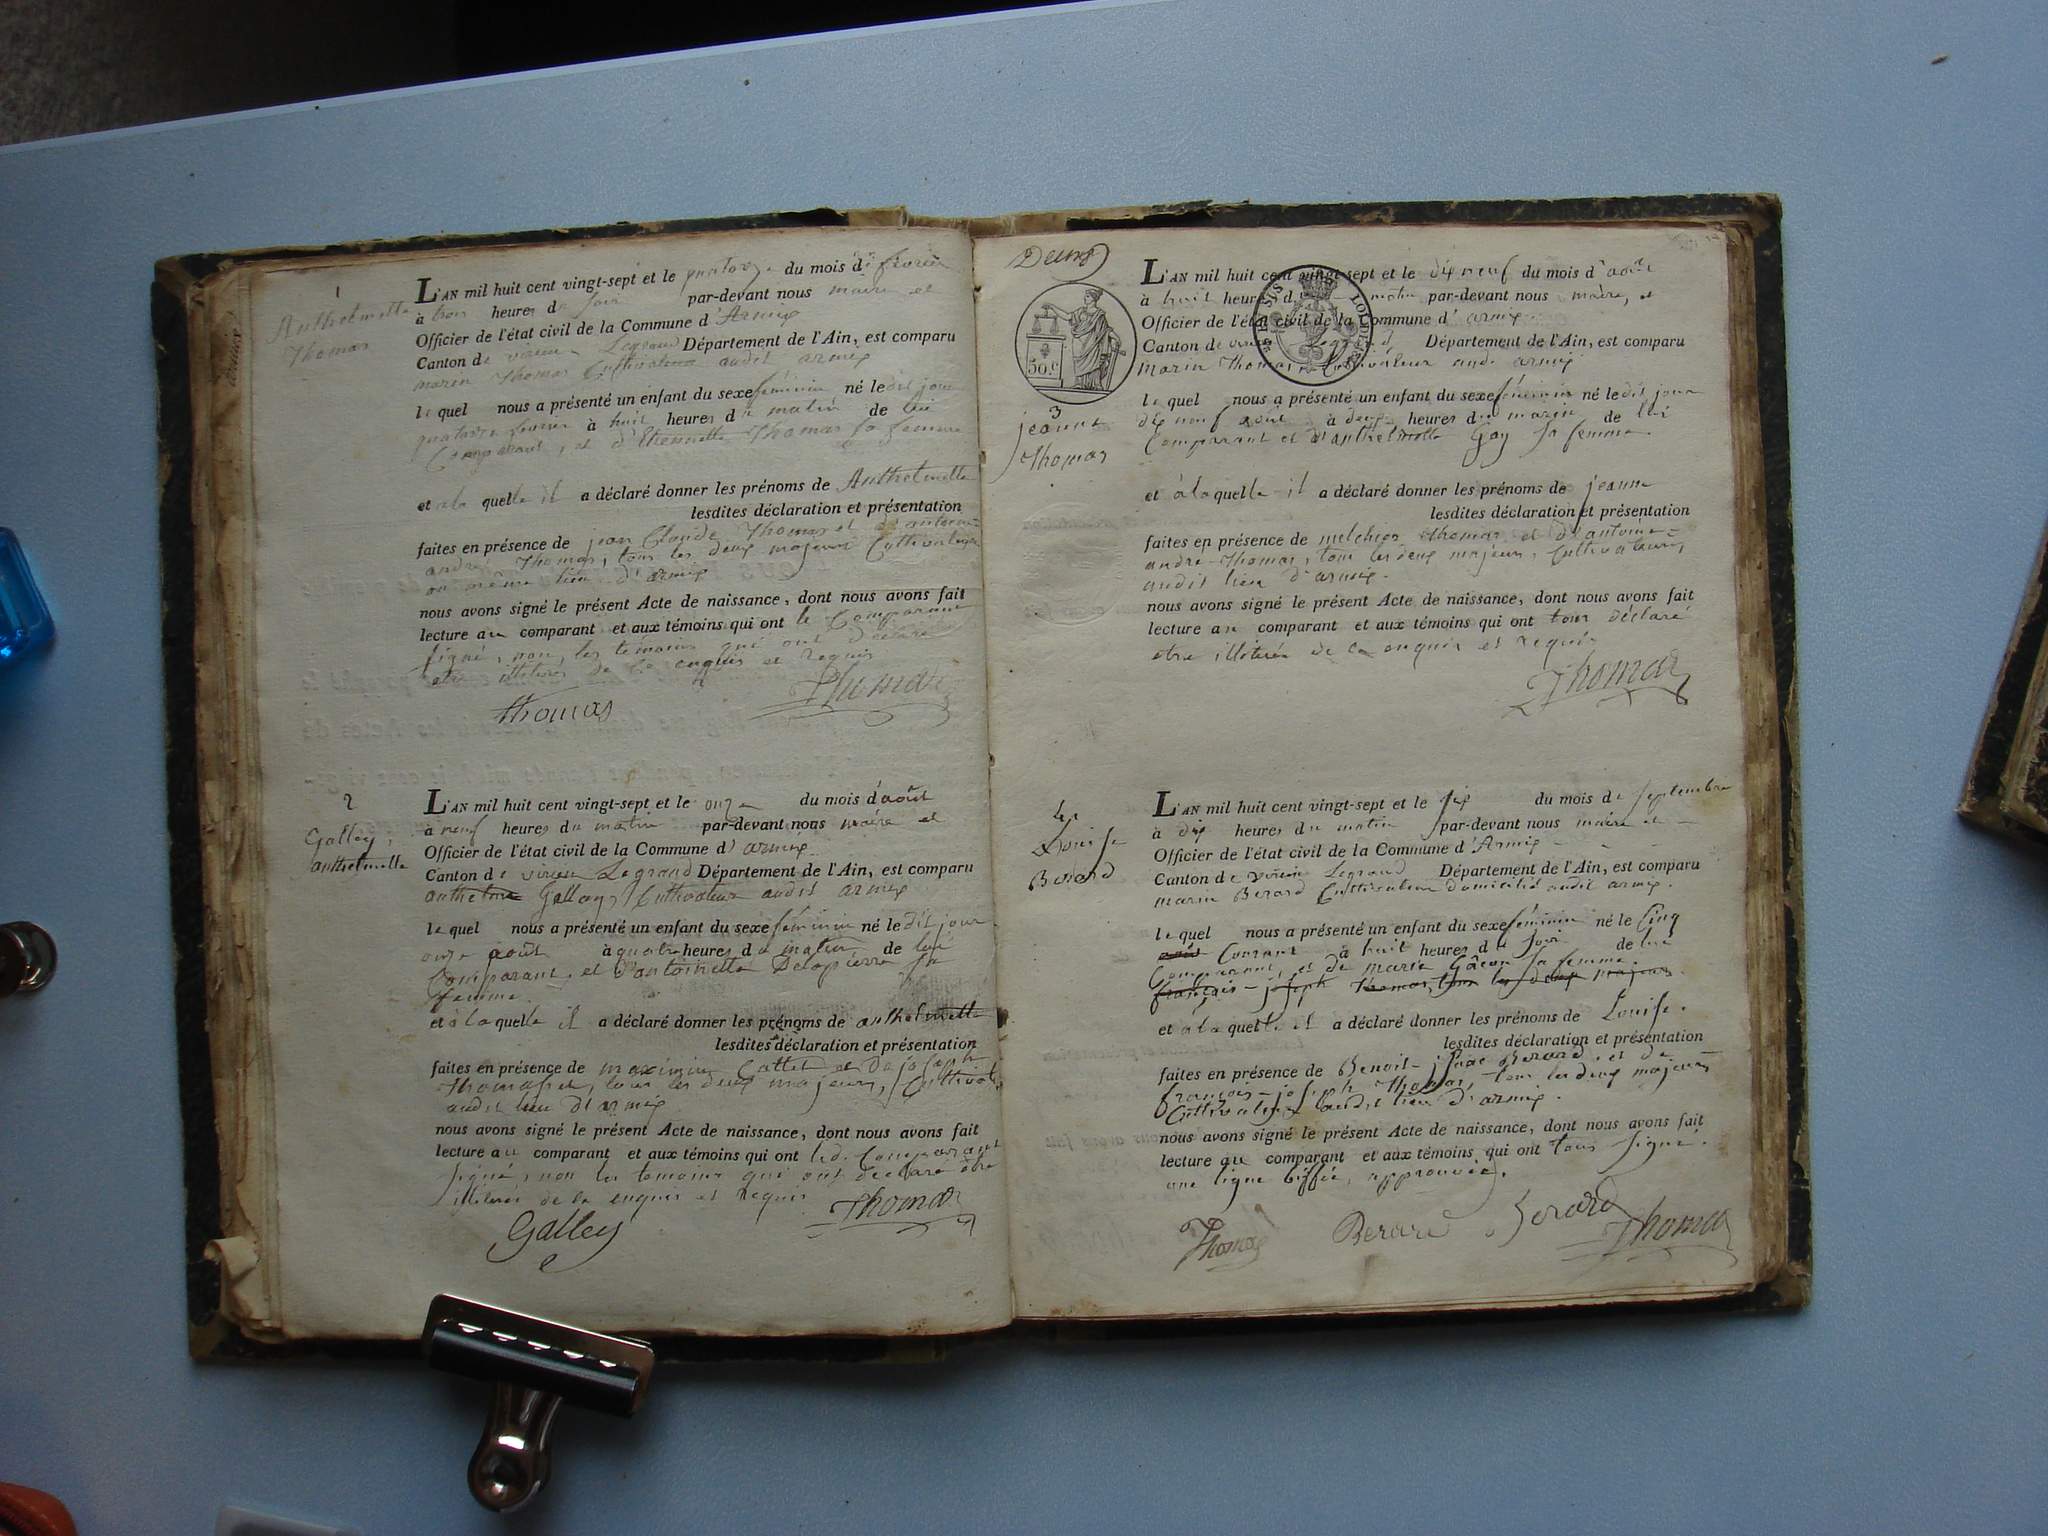 1
Anthelmette
Thomas
L'AN mil huit cent vingt-sept et le quatorze du mois de février
à trois heures du soir par-devant nous maire et
Officier de l'état civil de la Commune d'Armix
Canton de virieu Legrand Département de l'Ain, est comparu
marin Thomas Cultivateur audit armix
le quel nous a présenté un enfant du sexe féminin né le dit jour
quatorze février à huit heures du matin de lui
Comparant, et d'Etiennette Thomas sa femme
et à la quelle il a déclaré donner les prénoms de Anthelmette
lesdites déclaration et présentation
faites en présence de jean Claude Thomas et d'antoine=
andré Thomas, tous les deux majeurs Cultivateurs
au même lieu d'armix
nous avons signé le présent Acte de naissance, dont nous avons fait
lecture au comparant et aux témoins qui ont le Comparant
signé, non, les témoins qui ont déclaré
etre illiteres de ce enquis et requis
Thomas Thomas
2
Galley,
anthelmette
L'AN mil huit cent vingt-sept et le onze du mois d'août
à neuf heures du matin par-devant nous maire et
Officier de l'état civil de la Commune d'armix
Canton de virieu Legrand Département de l'Ain, est comparu
anthelme Galley, Cultivateur audit armix
le quel nous a présenté un enfant du sexe féminin né le dit jour
onze août à quatre heures du matin de lui
Comparant, et d'antoinette Delapierre sa
femme
et à la quelle il a déclaré donner les prénoms de anthelmette
lesdites déclaration et présentation
faites en présence de maximin et de joseph
tous les deux majeurs, Cultivat.
audit lieu d'armix
nous avons signé le présent Acte de naissance, dont nous avons fait
lecture au comparant et aux témoins qui ont led. Comparant
signé, non les temoins qui ont déclaré être
illiteres de ce enquis et requis
Galley Thomas
Deux
50.c
3
jeanne
Thomas
L'AN mil huit cent vingt-sept et le dix neuf du mois d'août
à huit heures du matin par-devant nous maire, et
Officier de l'état civil de la Commune d'armix
Canton de virieu Legrand Département de l'Ain, est comparu
marin Thomas, Cultivateur aud. armix
le quel nous a présenté un enfant du sexe féminin né le dit jour
dix neuf août à deux heures du matin de lui
Comparant et d'anthelmette Gay sa femme.
et à la quelle il a déclaré donner les prénoms de jeanne
lesdites déclaration et présentation
faites en présence de melchior Thomas et d'antoine=
andre Thomas, tous les deux majeurs, Cultivateurs
audit lieu d'armix.
nous avons signé le présent Acte de naissance, dont nous avons fait
lecture au comparant et aux témoins qui ont tous déclaré
etre illiterés de ce enquis et requis
Thomas
4
Louise
Berard
L'AN mil huit cent vingt-sept et le six du mois de septembre
à dix heures du matin par-devant nous maire et
Officier de l'état civil de la Commune d'Armix
Canton de virieu Legrand Département de l'Ain, est comparu
marin Berard Cultivateur domicilié audit armix.
le quel nous a présenté un enfant du sexe féminin né le Cinq
août Courant à huit heures du soir de lui
Comparant, et de marie Gâcon sa femme.
françois-joseph Thomas, tous les deux majeurs
et à la quelle il a déclaré donner les prénoms de Louise.
lesdites déclaration et présentation
faites en présence de Benoit-jsaac Berard, et de
françois-joseph Thomas, tous les deux majeurs
Cultivateurs audit lieu d'armix.
nous avons signé le présent Acte de naissance, dont nous avons fait
lecture au comparant et aux témoins qui ont tous signé.
une ligne biffée, approuvée.
Thomas Berard Berard Thomas